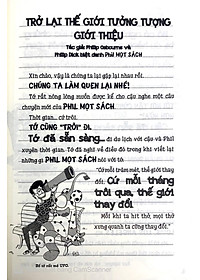 TRỞ LẠI THẾ GIỚI TƯỞNG TƯỢNG
GIỚI THIỆU
Tác giả Philip Osbourne và
Philip Dick biệt danh Phil MỌT SÁCH
Xin chào, vậy là chúng ta lại gặp lại nhau rồi.
CHÚNG TA LÀM QUEN LẠI NHÉ!
Tớ rất nóng lòng muốn được kể cho cậu nghe một câu
chuyện mới của PHIL MỌT SÁCH.
Thời gian... cứ trôi.
TỚ CŨNG "TRÔI" ĐI.
Tớ đã sẵn sàng... đi du lịch với cậu và Phil
xuyên thời gian. Tớ nghĩ về điều đó trong khi viết lại
những gì PHIL MỌT SÁCH nói với tớ:
"Cứ mỗi trăm mét, thế giới lại thay
đổi. Cứ mỗi tháng
trôi qua, thế giới
thay đổi.
Mỗi khi ta hít thở, mọi thứ
xung quanh ta cũng thay đổi."
CamScanner